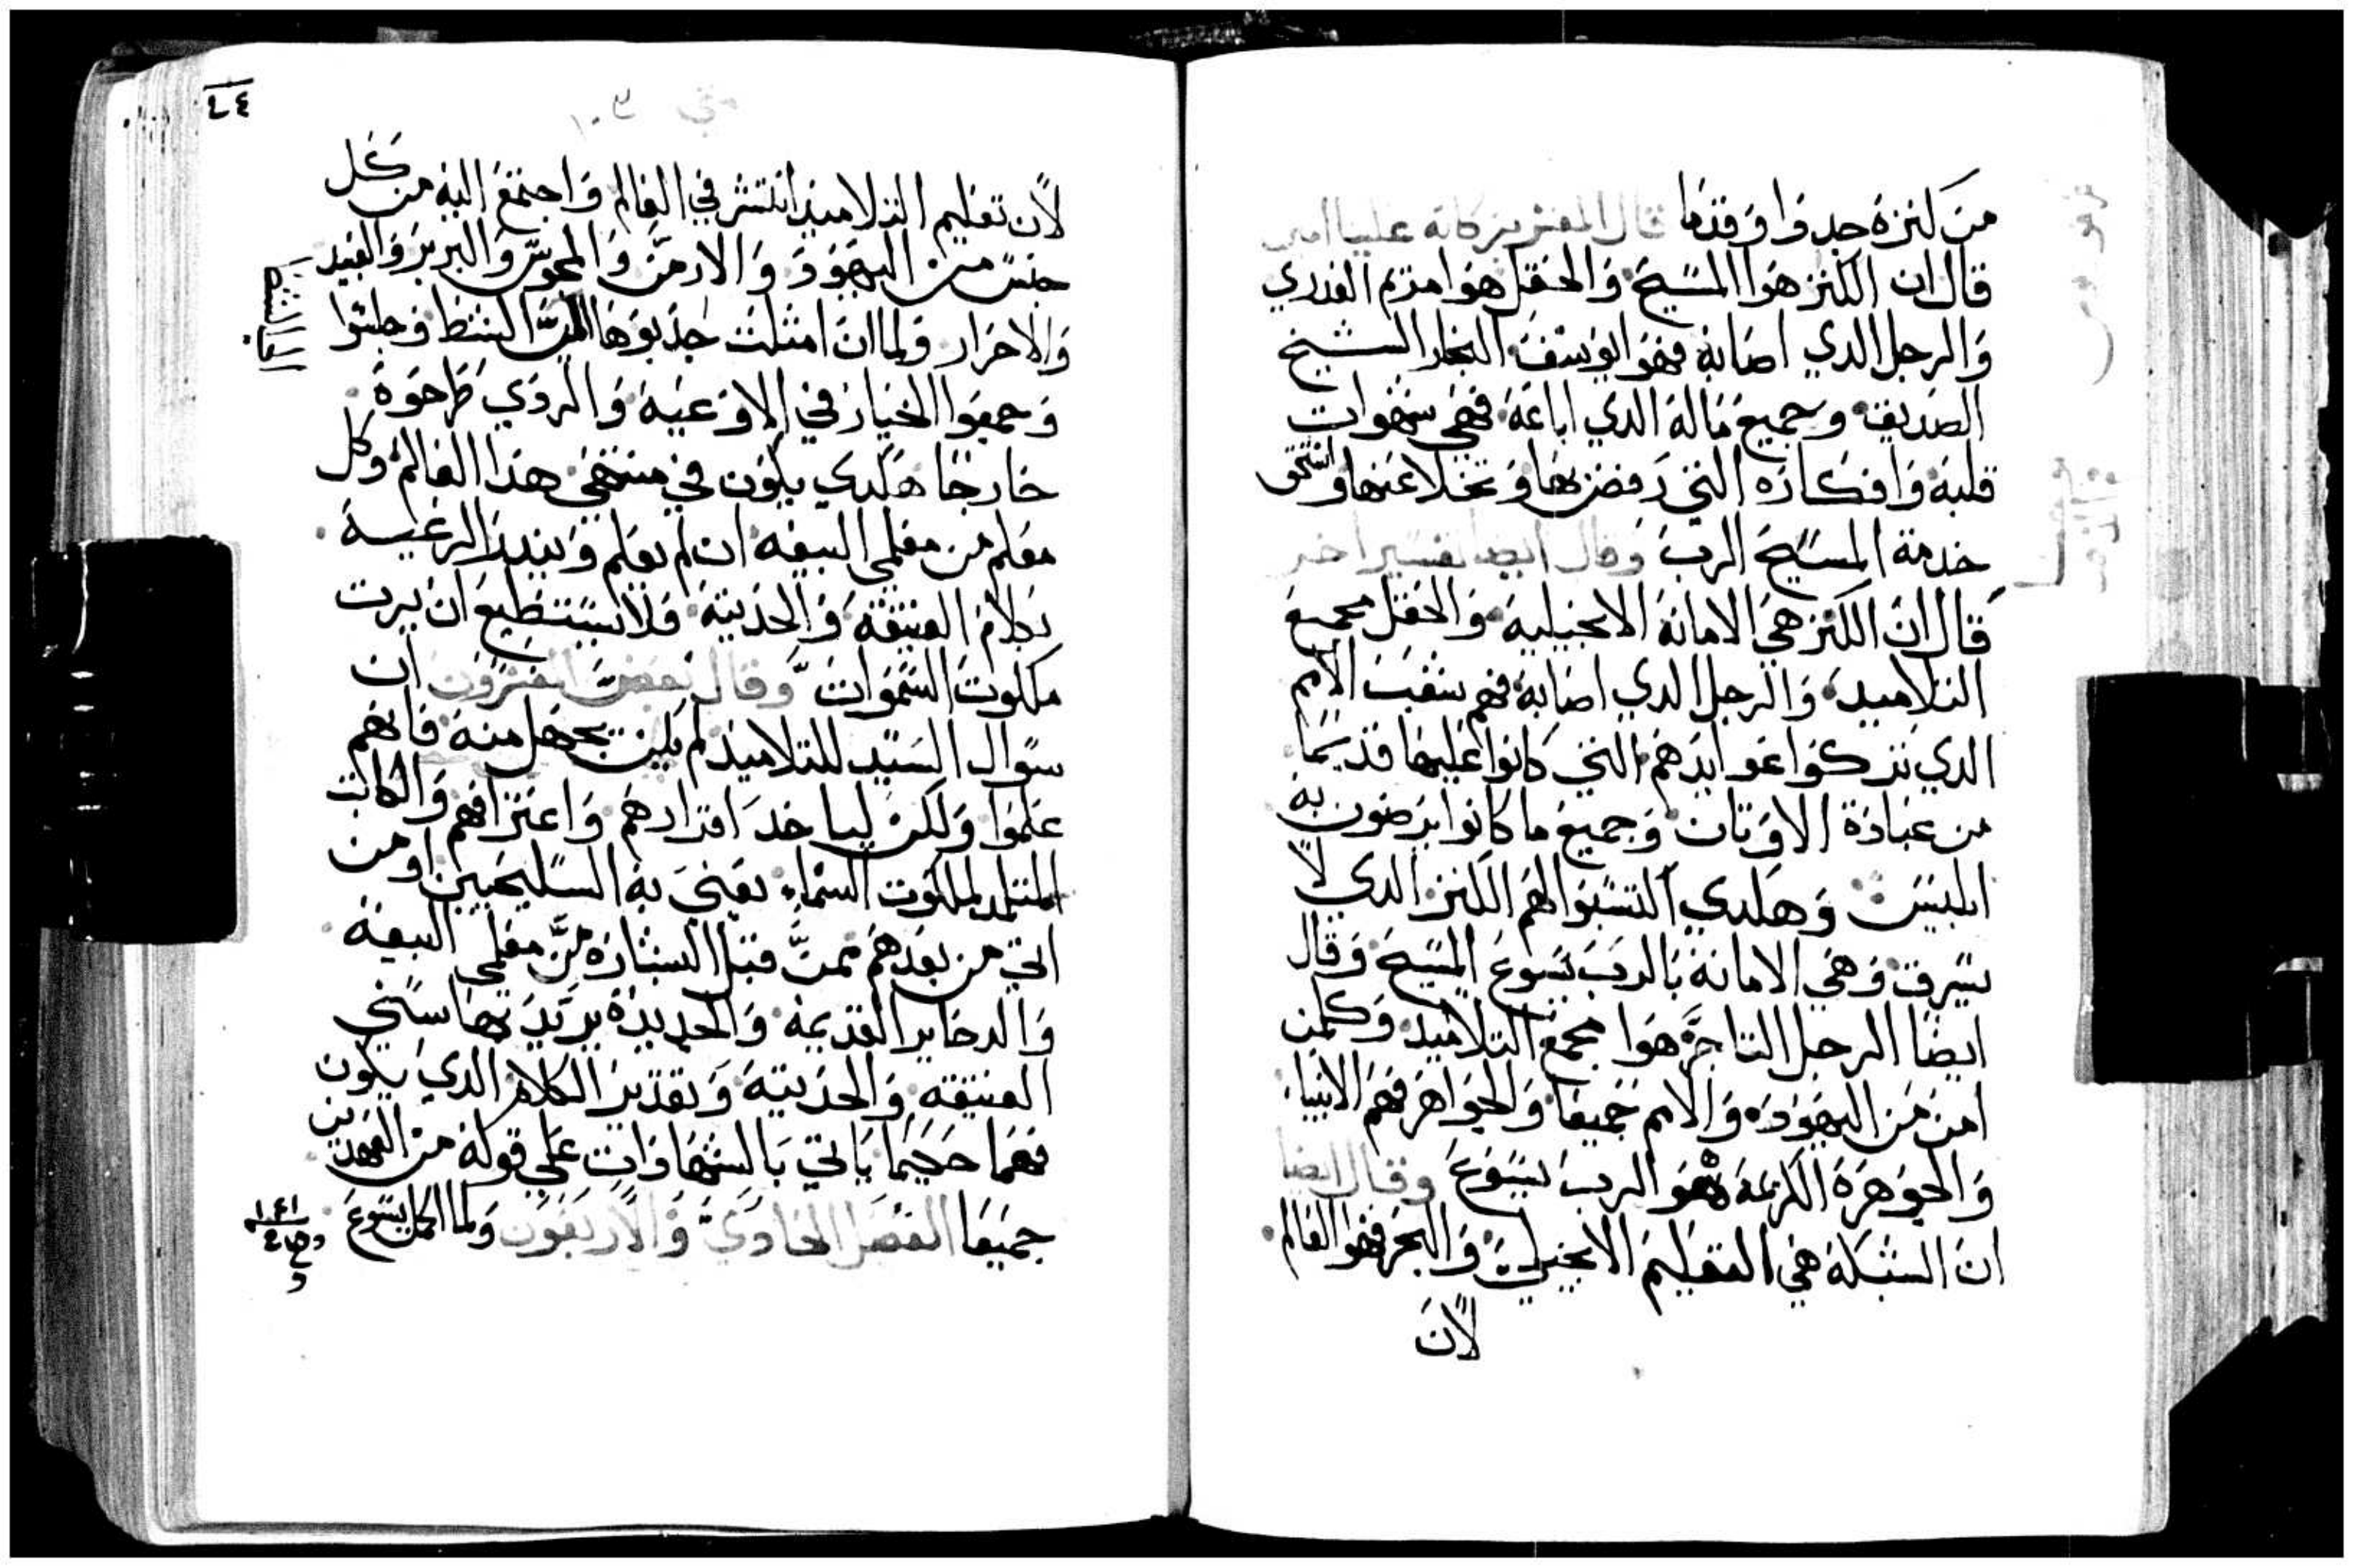 من كنزه جددا وقدما قال المفسر بركاته علينا امين
قال ان الكنز هوا المسيح والحقل هوا مرتمريم العدري
والرجل الدي اصابه فهو ايوسف النجار الشيخ
الصديق وجميع ماله الدي اباعه فهي شهوات
قلبه وافكاره التي رفضها وتخلا عنها واستحق
خدمة المسيح الرب وقال ايضا تفسير اخر
قال ان الكنز هي الامانة الانجيلية والحقل مجمع
التلاميد والرجل الدي اصابه فهم شعب الامم
الدي تركوا عوايدهم التي كانوا عليها قديما
من عبادة الاوتان وجميع ما كانوا يرضون به
ابليس وهكدي اكتسبوا لهم الكنز الدي لا
يسرق وهي الامانة بالرب يسوع المسيح وقال
ايضا الرجل التاجر هوا مجمع التلاميد وكلمن
امن من اليهود والامم جميعا والجواهر فهم الانبيا
والجوهرة الكريمة فهو الرب يسوع وقال ايضا
ان الشبكة هي التعليم الانجيلي والبحر فهو العالم
لان
٤٤
متي
لان تعليم التلاميد انتشر في العالم واجتمع اليه من كل
جنس من اليهود والارمن والمجوس والبربر والعبيد
والاحرار ولما ان امتلت جدبوها الي الشط وجلسوا
وجمعوا الخيار في الاوعيه والردي طرحوه
خارجا هكدي يكون في منتهي هدا العالم وكل
معلم من معلمي البيعه ان لم يعلم ويفيد الرعيه
بكلام العتيقة والحديتة فلا يستطيع ان يرت
ملكوت السموات وقال بعض المفسرون ان
سوال السيد للتلاميد لم يكن بجهل منه فانهم
علموا ولكن لياخد اقرارهم واعترافهم والكاتب
المتتلمد لملكوت السماء يعني به السليحيين او من
اتي من بعدهم ممن قبل البشارة من معلمي البيعة
والدخاير القديمه والجديدة يريد بها سنتي
العتيقه والحديتة وتقدير الكلام الدي يكون
فهما حكيما ياتي بالشهادات علي قوله من العهدين
جميعا الفصل الحادي والاربعون ولما اكمل يسوع